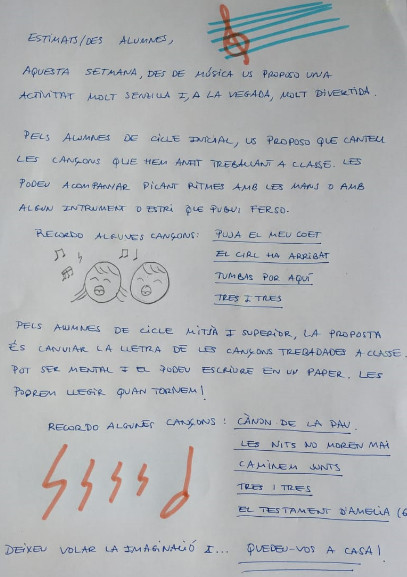 ESTIMATS/DES ALUMNES,
AQUESTA SETMANA, DES DE MÚSICA US PROPOSO UNA
ACTIVITAT MOLT SENZILLA I, A LA VEGADA, MOLT DIVERTIDA.
PELS ALUMNES DE CICLE INICIAL, US PROPOSO QUE CANTEU
LES CANÇONS QUE HEM ANAT TREBALLANT A CLASSE. LES
PODEU ACOMPANYAR PICANT RITMES AMB LES MANS O AMB
ALGUN INTRUMENT O ESTRI QUE PUGUI FER-SO.
RECORDO ALGUNES CANÇONS: PUJA EL MEU COET
EL CIRC HA ARRIBAT
TUMBAS POR AQUÍ
TRES I TRES
PELS ALUMNES DE CICLE MITJÀ I SUPERIOR, LA PROPOSTA
ÉS CANVIAR LA LLETRA DE LES CANÇONS TREBALLADES A CLASSE.
POT SER MENTAL I EL PODEU ESCRIURE EN UN PAPER. LES
PODREM LLEGIR QUAN TORNEM!
RECORDO ALGUNES CANÇONS: CÀNON DE LA PAU
LES NITS NO MOREN MAI
CAMINEM JUNTS
TRES I TRES
EL TESTAMENT D'AMELIA (6
DEIXEU VOLAR LA IMAGINACIÓ I... QUEDEU-VOS A CASA!